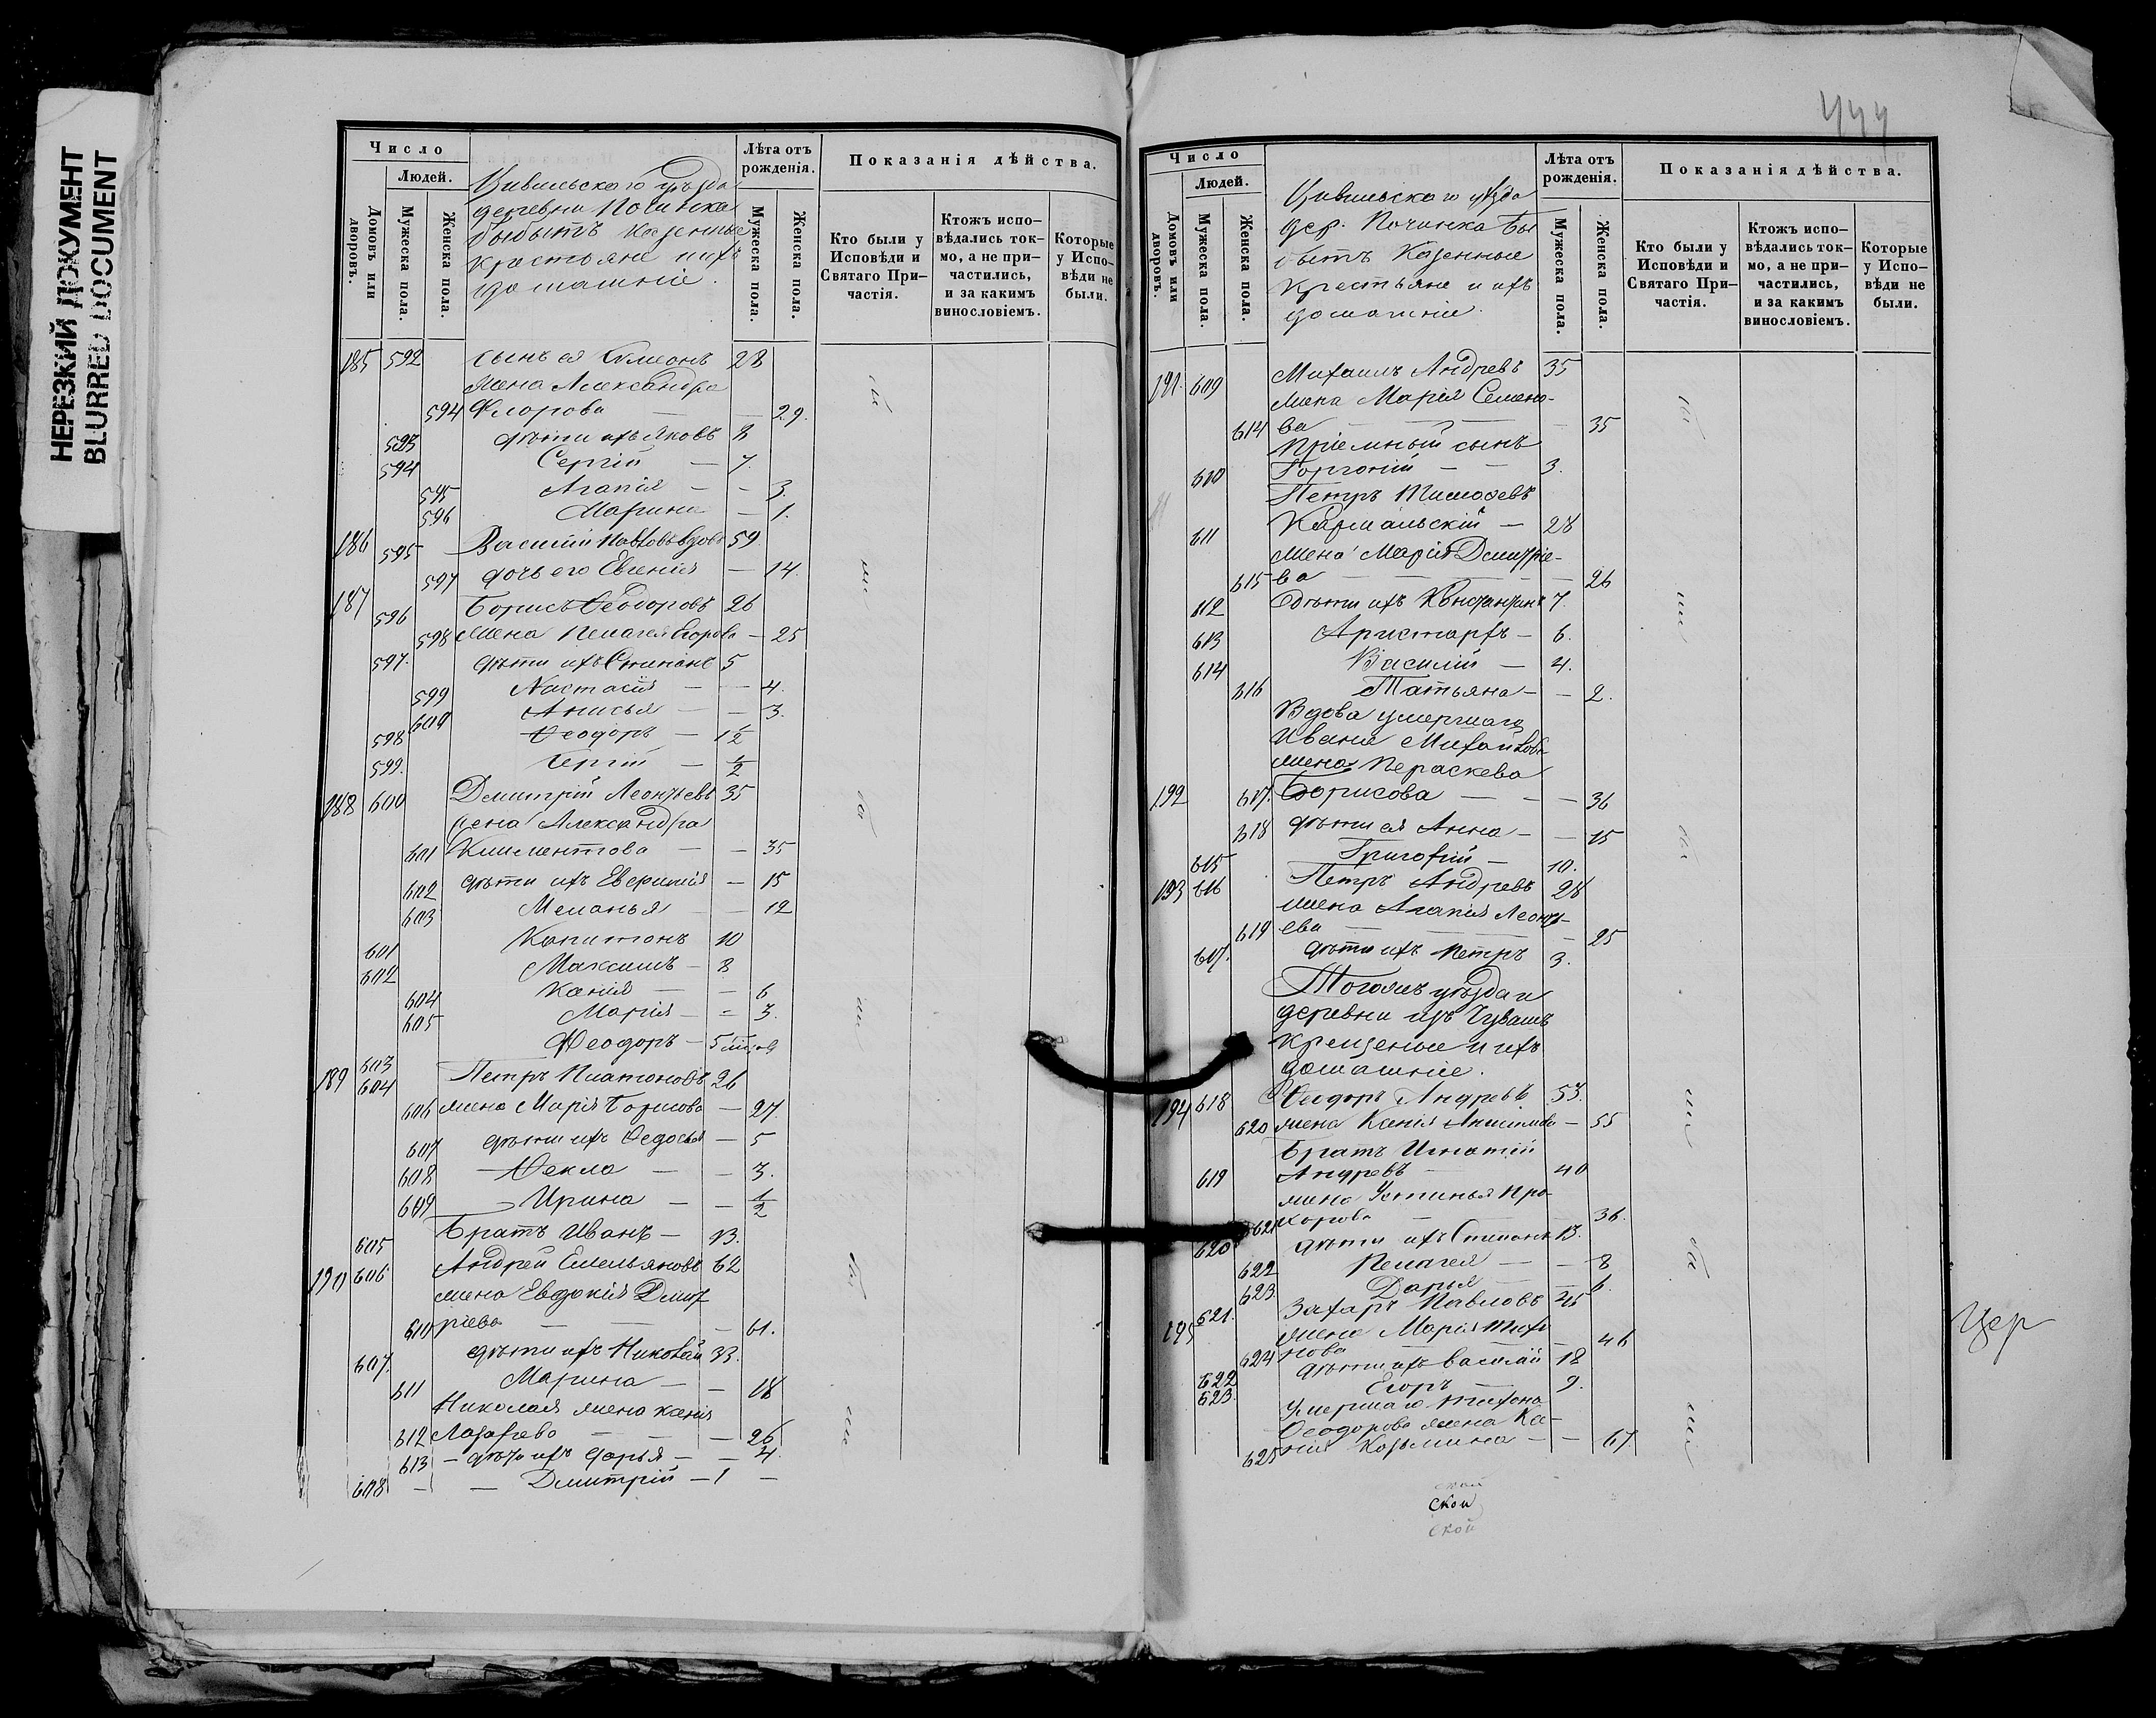 НЕРЕЗКИЙ ДОКУМЕНТ
BLURRED DOCUMENT
Число
Людей.
Домовъ или дворовъ.
Мужеска пола.
Женска пола.
Цивильскаго уѣзда
деревни Починка
Быбыть казенные
крестьяне и ихъ
домашніе.
Лѣта отъ рожденія.
Мужеска пола.
Женска пола.
Показанія дѣйства.
Кто были у Исповѣди и Святаго При-частія.
Ктожъ испо-вѣдались ток-мо, а не при-частились, и за какимъ винословіемъ.
Которые у Испо-вѣди не были.
185 592 сынъ ея Симеонъ 28
жена Александра
594 Флорова — — 29.
593 дѣти ихъ Яковъ 8
594 Сергій — 7.
595 Агапія — — 3.
596 Марина — 1.
186 595 Василій Павловъ вдовъ 59
597 дочь его Евгенія — 14.
187 596 Борисъ Ѳеодоровъ 26
598 жена Пелагея Егорова — 25
597. дѣти ихъ Степанъ 5
599 Настасія — — 4.
600 Анисья — — 3.
598 Ѳеодоръ — 1½
599. Сергій — ½
188 600 Дмитрій Леонтьевъ 35
жена Александра
601 Климентова — — 35
602 дѣти ихъ Евфимія — 15
603 Меланья — 12
601 Капитонъ 10
602 Максимъ — 8
604 Ксенія — — 6
605 Марія — — 3.
603 Ѳеодоръ — 5
189 604 Петръ Платоновъ 26
606 жена Марія Борисова — 27.
607 дѣти ихъ Ѳедосья — 5
608 Ѳекла — — 3.
609 — Ирина — — ½
605 Братъ Иванъ — 13.
190 606 Андрей Емельяновъ 62
жена Евдокія Дмит
610 ріева — — — 61.
607. дѣти ихъ Николай 33.
611 Марина — — 18
Николая жена Ксенія
612 Лазарева — — — 26
613 — дѣти ихъ Дарья — — 4.
608 — — Дмитрій — 1 —
Число
Людей.
Домовъ или дворовъ.
Мужеска пола.
Женска пола.
Цивильскаго уѣзда
дер. Починка Бы
быть Казенные
крестьяне и ихъ
домашніе.
Лѣта отъ рожденія.
Мужеска пола.
Женска пола.
Показанія дѣйства.
Кто были у Исповѣди и Святаго При-частія.
Ктожъ испо-вѣдались ток-мо, а не при-частились, и за какимъ винословіемъ.
Которые у Испо-вѣди не были.
191. 609 Михаилъ Андревъ 35
жена Марія Семено-
614 ва — — — 35
Пріемный сынъ
610 Горгоній — — 3.
Петръ Тимофевъ
611 Кармальскій — 28
жена Марія Дмитріе-
615 ва — — — — 26
612 дѣти ихъ Константинъ 7.
613 Аристархъ — 6.
614 Василій — 4.
616 Татьяна — — 2.
Вдова умершаго
Ивана Михайлова
жена Пераскева
192 617. Борисова — — — 36
618 дѣти ея Анна — — 15
615 Григорій — 10.
193 616 Петръ Андревъ 28
жена Агапія Леонть-
619 ева — — — 25
617. дѣти ихъ Петръ 3.
Тогожъ уѣзда и
деревни изъ Чувашъ
крещеные и ихъ
домашніе.
194 618 Ѳедоръ Андревъ 53.
620 жена Ксенія Анисимова — 55
Братъ Игнатій
619 Андревъ — 40
жена Устинья Про-
621 хорова — — — 36.
620 дѣти ихъ Степанъ 13.
622 Пелагея — — 8
623 Дарья — — 6.
195 621. Захаръ Павловъ 45
жена Марія Тихо
624 нова — — 46
622 дѣти ихъ Василій 18
623. Егоръ — 9.
Умершаго Тихона
Ѳеодорова жена Ксе-
625 нія Козьмина — — 67.
ской
Цер